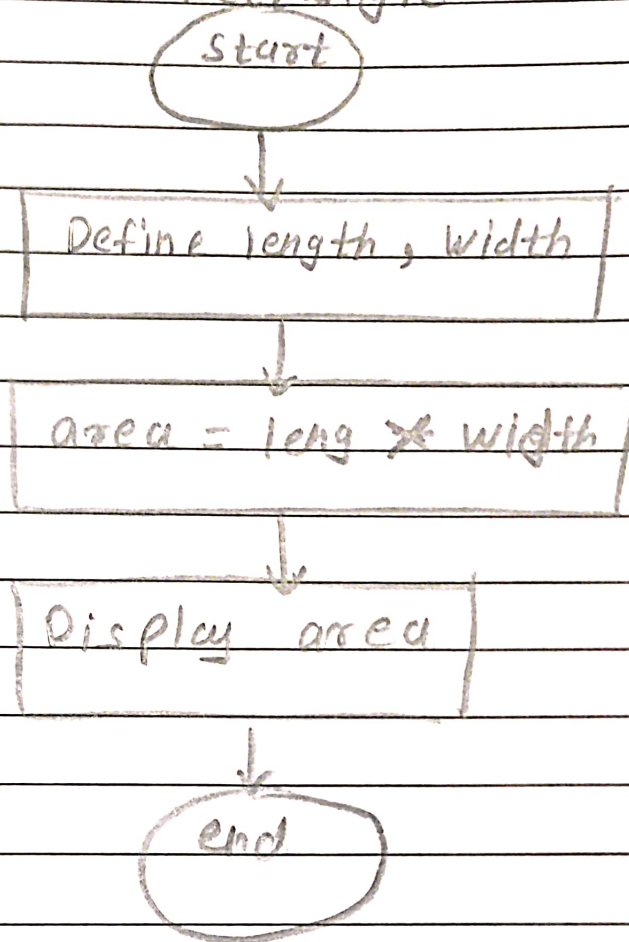 start
Define length, width
area = leng * width
Display area
end